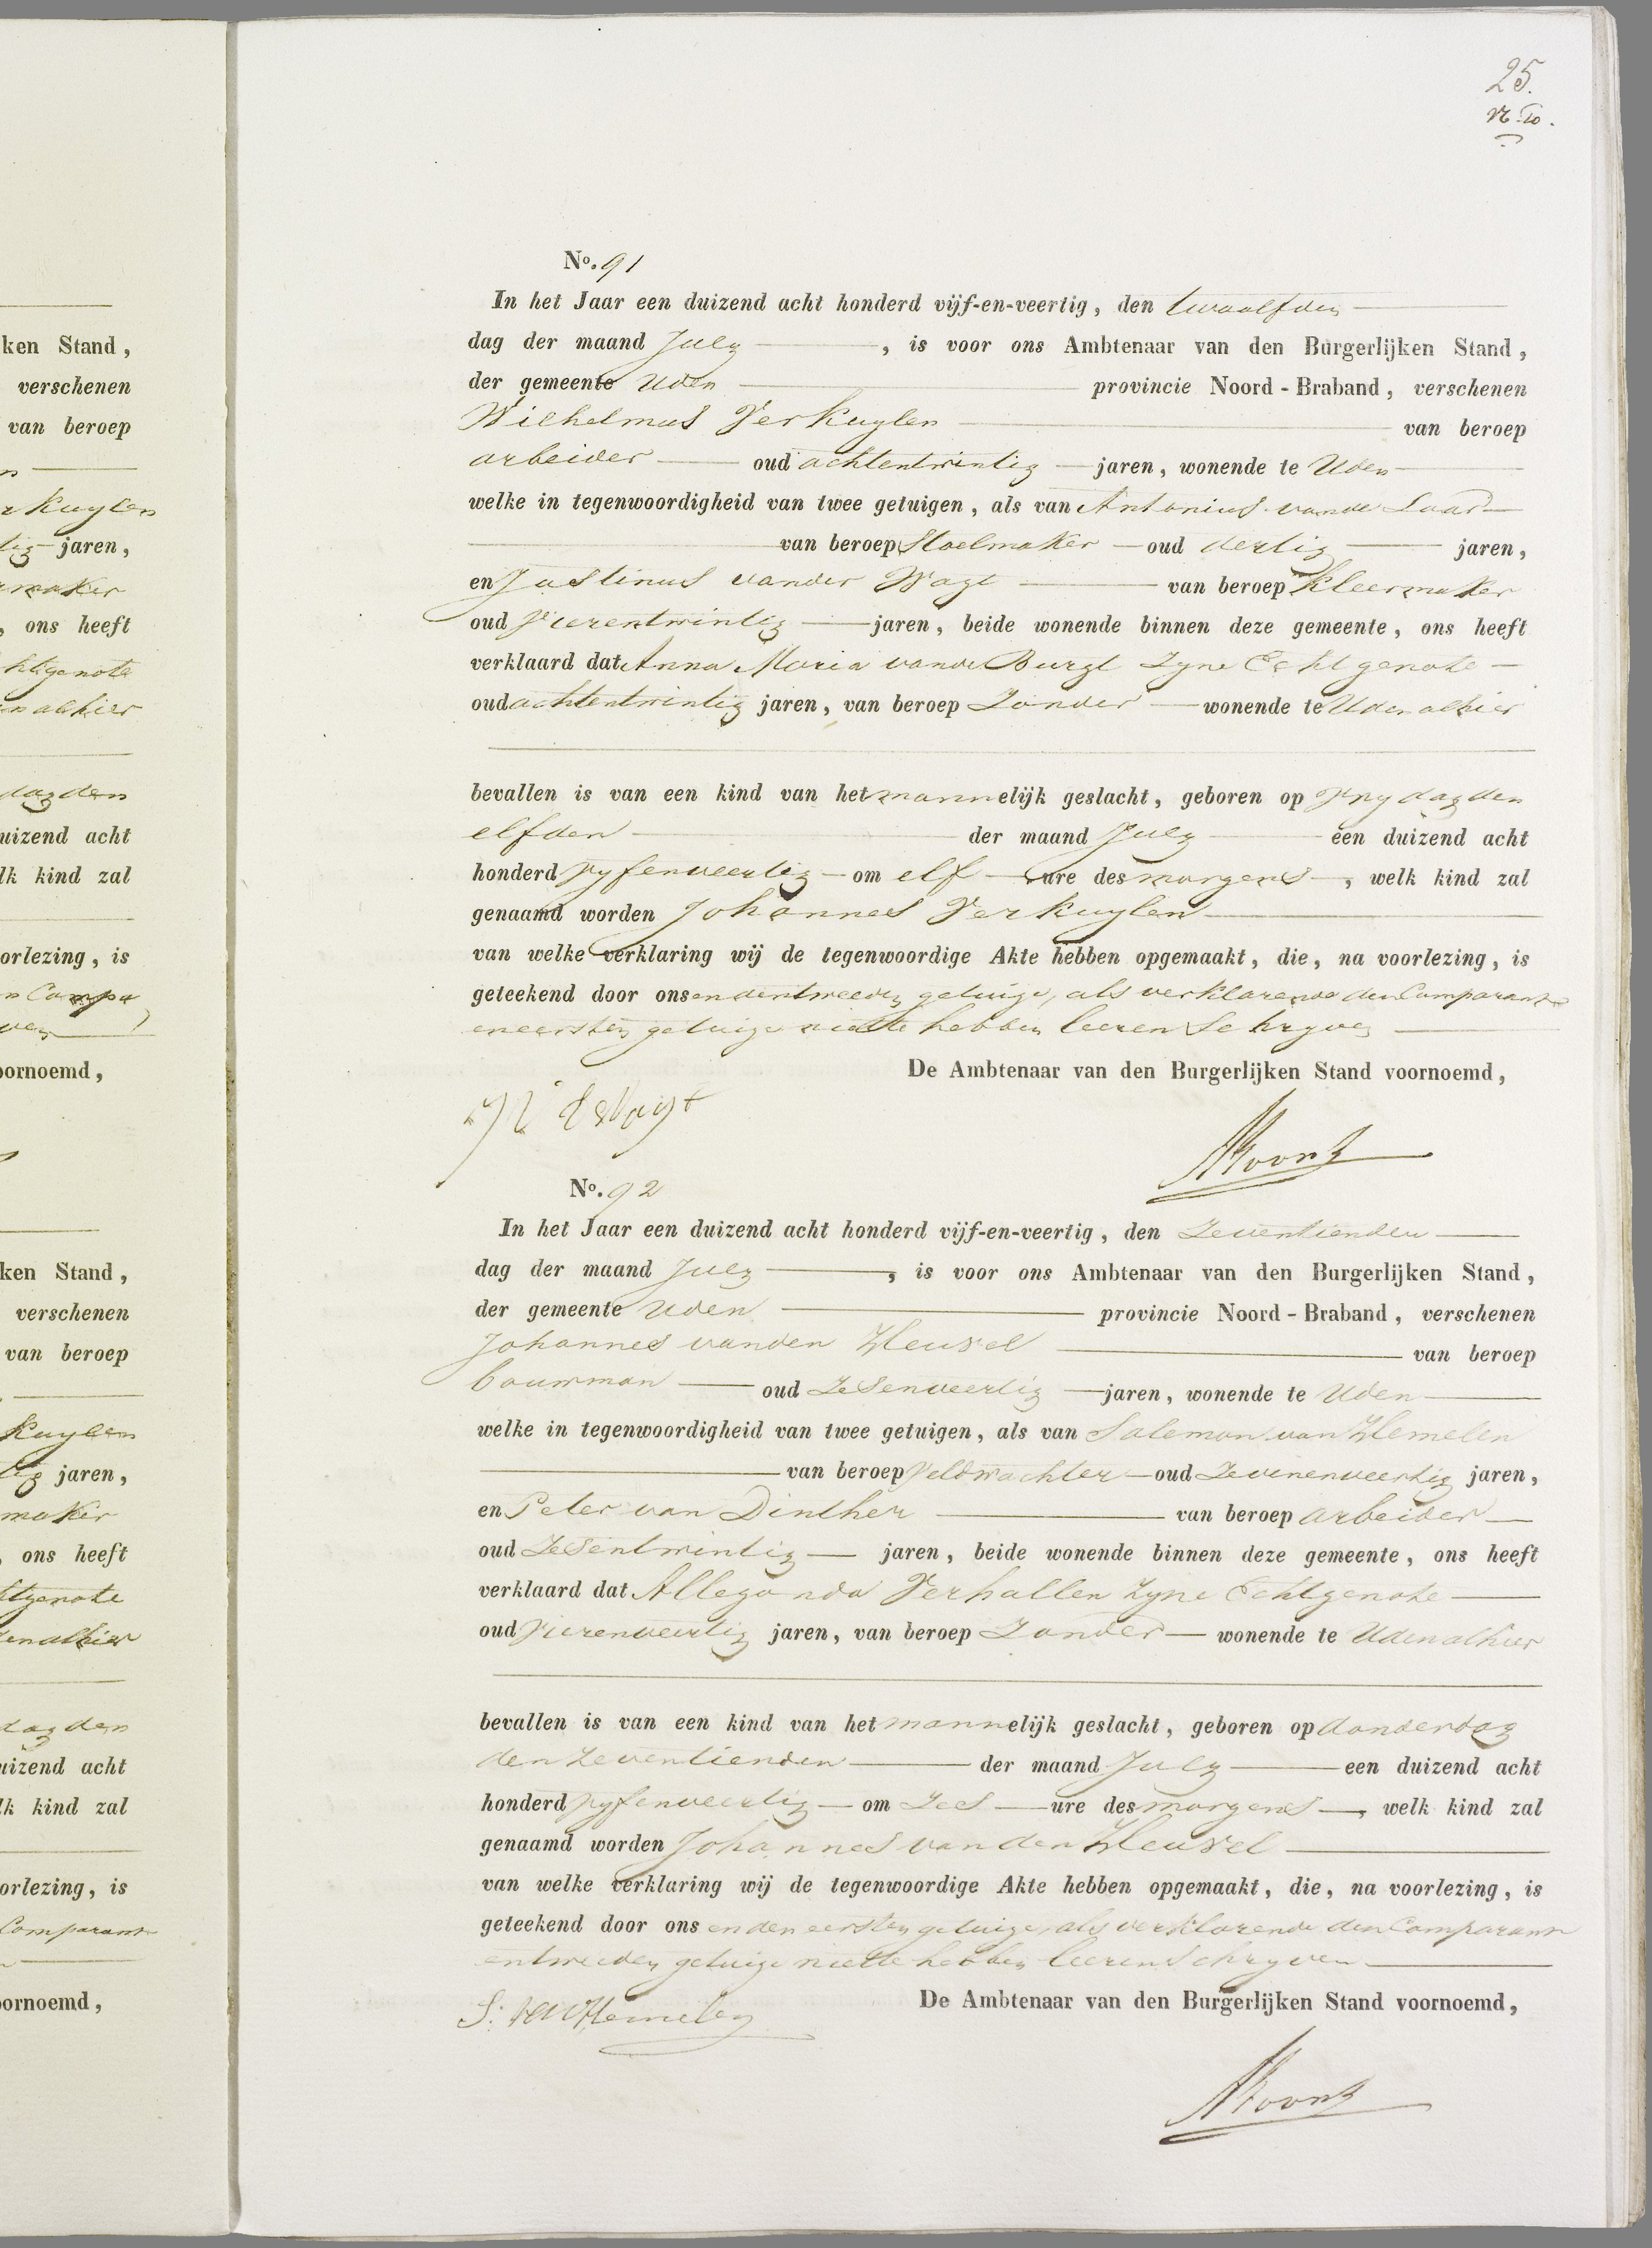 25.
No. 91
In het Jaar een duizend acht honderd vijf-en-veertig, den twaalfden
dag der maand July, is voor ons Ambtenaar van den Burgerlijken Stand,
der gemeente Uden provincie Noord-Braband, verschenen
Wilhelmus Verkuylen van beroep
arbeider oud achtentwintig jaren, wonende te Uden
welke in tegenwoordigheid van twee getuigen, als van Antonius vande Laar
van beroep Stoelmaker oud dertig jaren,
en Justinus vander Vagt van beroep Kleermaker
oud Vierentwintig jaren, beide wonende binnen deze gemeente, ons heeft
verklaard dat Anna Maria vande Burgt Zyne Echtgenote
oud achtentwintig jaren, van beroep Zonder wonende te Uden alhier
bevallen is van een kind van het mannelijk geslacht, geboren op Vrydag den
elfden der maand July een duizend acht
honderd vyfenveertig om elf ure des morgens, welk kind zal
genaamd worden Johannes Verkuylen
van welke verklaring wij de tegenwoordige Akte hebben opgemaakt, die, na voorlezing, is
geteekend door ons en den tweeden getuige, als verklarende den Comparant
en eersten getuige niette hebben leeren Schryven
De Ambtenaar van den Burgerlijken Stand voornoemd,
No. 92
In het Jaar een duizend acht honderd vijf-en-veertig, den Zeventienden
dag der maand July, is voor ons Ambtenaar van den Burgerlijken Stand,
der gemeente Uden provincie Noord-Braband, verschenen
Johannes vanden Heuvel van beroep
bouwman oud Zesenveertig jaren, wonende te Uden
welke in tegenwoordigheid van twee getuigen, als van Salemon van Hemelen
van beroep Veldwachter oud Zevenenveertig jaren,
en Peter van Dinther van beroep arbeider
oud Zesentwintig jaren, beide wonende binnen deze gemeente, ons heeft
verklaard dat Allegonda Verhallen Zyne Echtgenote
oud Vierenveertig jaren, van beroep Zonder wonende te Uden alhier
bevallen is van een kind van het mannelijk geslacht, geboren op donderdag
den Zeventienden der maand July een duizend acht
honderd vyfenveertig om Zes ure des morgens, welk kind zal
genaamd worden Johannes van den Heuvel
van welke verklaring wij de tegenwoordige Akte hebben opgemaakt, die, na voorlezing, is
geteekend door ons en den eersten getuige, als verklarende den Comparant
en tweeden getuige niette hebben leeren Schryven
De Ambtenaar van den Burgerlijken Stand voornoemd,
S: van Hemelen